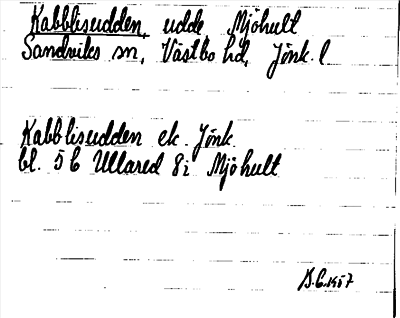 Kabblisudden, udde, Mjöhult
Sandviks sn, Västbo hd, Jönk. l
Kabblisudden ek. Jönk.
bl. 5 C Ullared 8i Mjöhult
1957